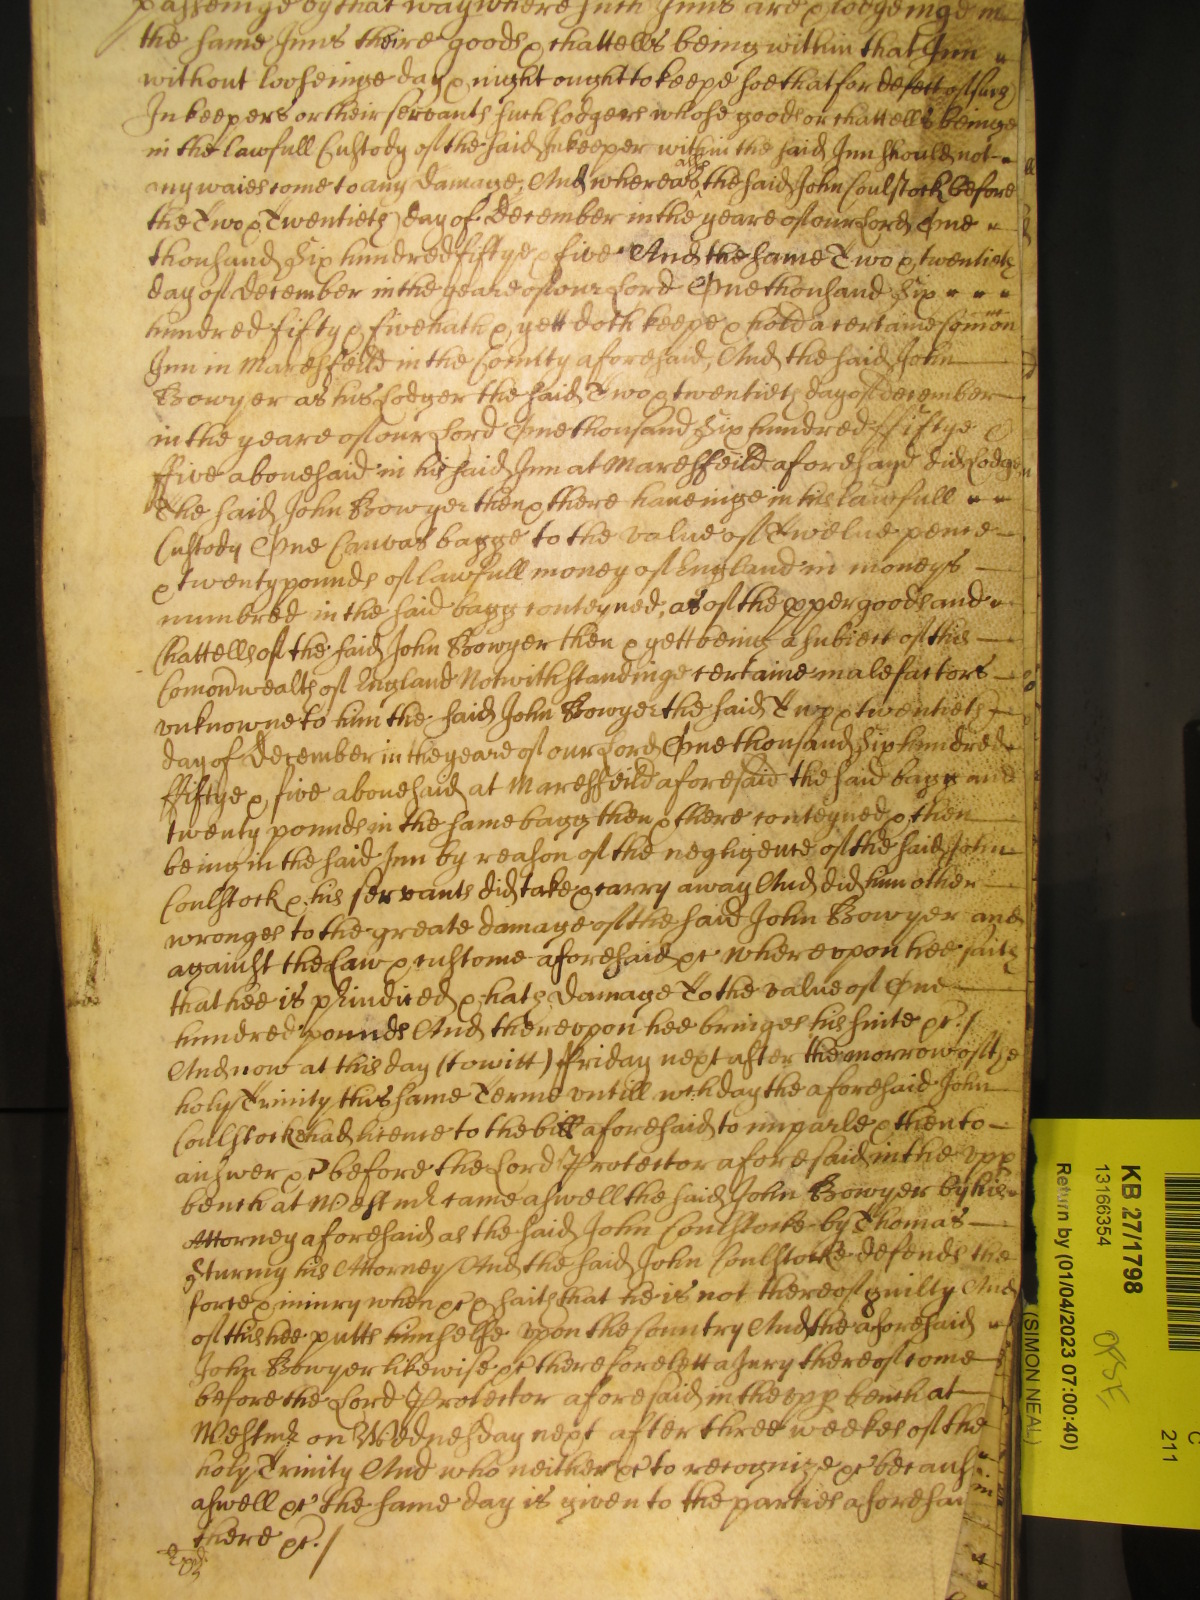 passeinge by that way where such Inns are & lodgeinge in
the same Inns theire goods & chattells being within that Inn
without looseinge day & night ought to keepe soe that for defect of such
Inkeepers or their servants such lodgers whose goods or chattells beinge
in the lawfull Custody of the said Inkeeper within the said Inn should not
any waies come to any damage, And whereas also the said John Coulstock before
the Two & Twentieth day of December in the yeare of our Lord One
thousand Six hundred fiftye & five And the same Two & twentieth
day of December in the yeare of our Lord One thousand Six
hundred fifty & five hath & yett doth keepe & hold a certaine comon
Inn in Maresfeild in the County aforesaid, And the said John
Bowyer as his Lodger the said Two & twentieth day of December
in the yeare of our Lord One thousand Six hundred ffiftye &
ffive abovesaid in his said Inn at Maresfeild aforesayd did Lodge
The said John Bowyer then & there haveinge in his lawfull
Custody One Canvas bagge to the value of Twelve pence
& twenty pounds of lawfull money of England in moneys
numbred in the said bagg conteyned, as of the pper goods and
Chattells of the said John Bowyer then & yett being a subiect of this
Comonwealth of England Notwithstandinge certaine malefactors
unknowne to him the said John Bowyer the said Two & twentieth
day of December in the yeare of our Lord One thousand Six hundred
ffiftye & five abovesaid at Maresfeild aforesaid the said bagg and
twenty pounds in the same bagg then & there conteyned & then
being in the said Inn by reason of the negligence of the said John
Coulstock & his servants did take & carry away And did him other
wronges to the greate damage of the said John Bowyer and
against the Law & custome aforesaid &c whereupon hee saith
that hee is piudiced & hath damage To the value of One
hundred pounds And thereupon hee bringes his suite &c./
And now at this day (to witt) ffriday next after the morrow of the
holy Trinity this same Terme untill wch day the aforesaid John
Coulstocke had licence to the bill aforesaid to imparle & then to
answer &c before the Lord Protector aforesaid in the upp
bench at Westmr came aswell the said John Bowyer by his
Attorney aforesaid as the said John Coulstocke by Thomas
Sturmy his Attorney And the said John Coulstocke defends the
force & iniury when &c & saith that he is not thereof guilty And
of this hee putts himselfe upon the Country And the aforesaid
John Bowyer likewise &c therefore lett a Jury thereof come
before the Lord Protector aforesaid in the upp bench at
Westmr on Wednesday next after three weekes of the
holy Trinity And who neither &c to recognize &c because
aswell &c The same day is given to the parties aforesaid
there &c./
KB 27/1798
13166354
Return by (01/04/2023 07:00:40)
(SIMON NEAL)
C
211